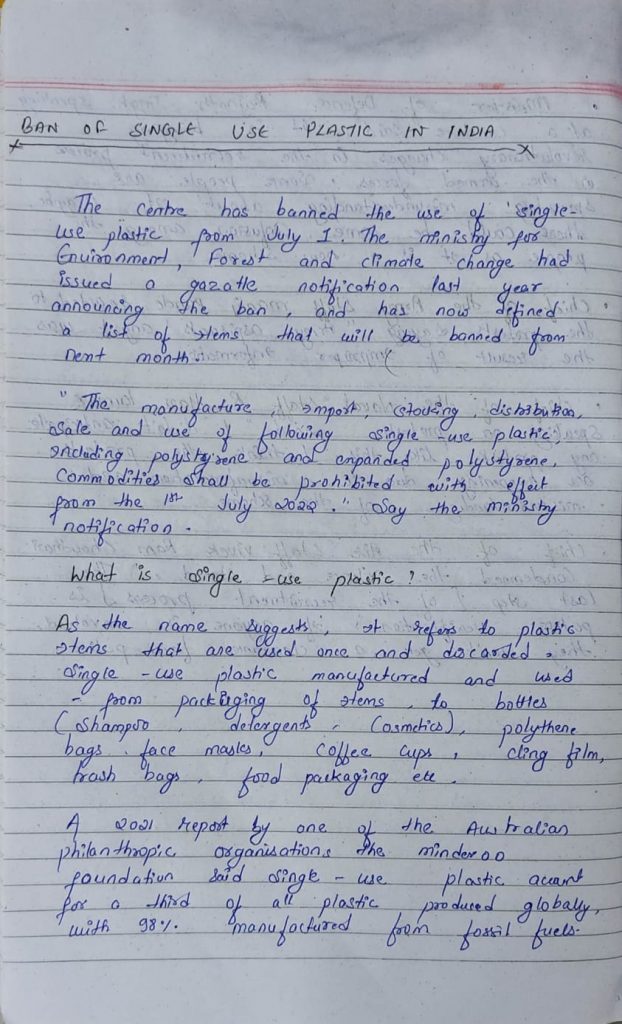 BAN OF SINGLE USE PLASTIC IN INDIA
The Centre has banned the use of 'single-
use plastic from July 1. The ministry for
Environment, Forest and climate change had
issued a gazatte notification last year
announcing the ban, and has now defined
a list of items that will be banned from
next month.
"The manufacture, import, stocking, distribution,
Sale and use of following single-use plastic,
including polystyrene and expanded polystyrene,
Commodities shall be prohibited with effect
from the 1st July 2022." Say the ministry
notification.
What is single-use plastic?
As the name suggests, it refers to plastic
items that are used once and discarded.
Single-use plastic manufactured and used
- from packaging of items, to bottles
(shampoo, detergents, Cosmetics), polythene
bags, face masks, coffee cups, cling film,
trash bags, food packaging etc.
A 2021 report by one of the Australian
philanthropic organisations the minderoo
foundation said single-use plastic account
for a third of all plastic produced globally,
with 98% manufactured from fossil fuels.